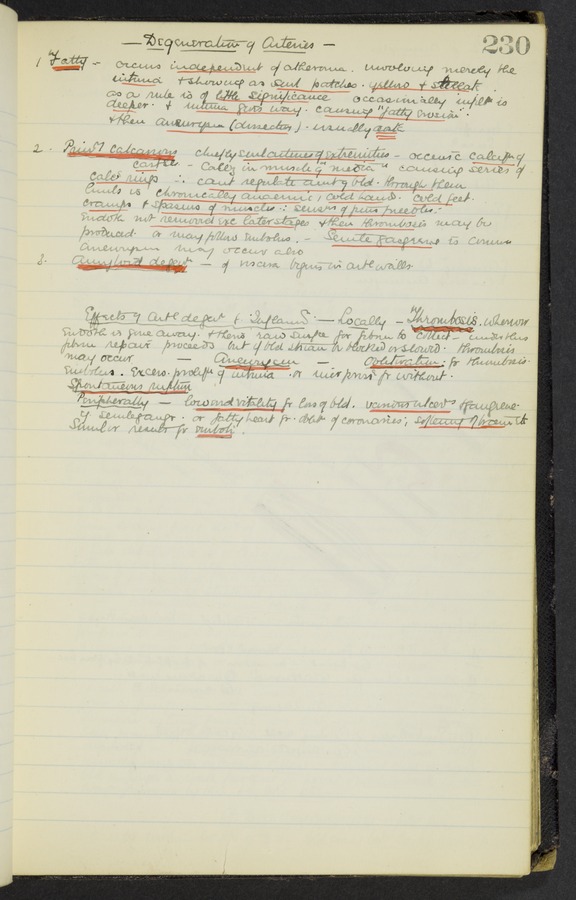 230
— Degeneration of Arteries —
1 Fatty – occurs independent of atheroma. involving merely the
intima & showing as patches. yellow & streak
as a rule is of little significance occasionally
deeper. & intima gives way. causing "fatty erosion"
& then aneurysm (dissectors). usually
2. Prim^y calcareous chiefly senile arteries of extremities –
– in muscle of "media" causing series of
calc^s rings ∴ can't regulate am^t of bld. through them
limbs is chronically anaemic, cold hands. cold feet.
cramps & spasms of muscles: of pins needles.
Endoth not removed exc later stages & then thrombosis may be
produced. or may follow Embolus. – Senile gangrene is common
Aneurysm may occur also
3. Amyloid degen^n – of viscera begins in art^l walls.
Effects of art^l degen^n & — Locally – "Thrombosis. wherever
Endoth is give away. & there's raw surface for fibrin to collect –
repair proceeds but if bld stream be blocked or slowed. thrombosis
may occur — Aneurysm — Obliteration. fr thrombosis.
Embolus. Excess. prolif^n of intima or press^r fr without.
Spontaneous rupture
Peripherally – lowered vitality fr loss of bld. various ulcer^ns & gangrene
eg senile gangr. or fatty heart fr. oblit^n of coronaries; softening of brain etc
Similar results fr emboli.